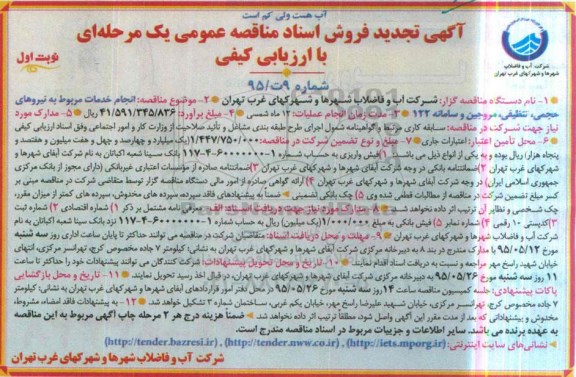 آب هست ولی کم است
آگهی تجدید فروش اسناد مناقصه عمومی یک مرحله‌ای
با ارزیابی کیفی
نوبت اول
شماره ۹ت/۹۵
شرکت آب و فاضلاب
شهرها و شهرکهای غرب تهران
۱- نام دستگاه مناقصه گزار: شرکت آب و فاضلاب شهرها و شهرکهای غرب تهران ۲- موضوع مناقصه: انجام خدمات مربوط به نیروهای
حجمی، تنظیفی، مروجین و سامانه ۱۲۲ ۳- مدت زمان انجام عملیات: ۱۲ ماه شمسی ۴- مبلغ برآورد: ۴۱/۵۹۱/۳۴۵/۸۳۶ ریال ۵- مدارک مورد
نیاز جهت شرکت در مناقصه: سابقه کاری مرتبط و گواهینامه شمول اجرای طرح طبقه بندی مشاغل و تأئید صلاحیت از وزارت کار و امور اجتماعی وفق اسناد ارزیابی کیفی
۶- محل تأمین اعتبار: اعتبارات جاری ۷- مبلغ و نوع تضمین شرکت در مناقصه: ۱/۴۴۷/۷۵۰/۰۰۰ (یک میلیارد و چهارصد و چهل و هفت میلیون و هفتصد و
پنجاه هزار) ریال بوده و به یکی از انواع ذیل می باشد: ۱) فیش واریزی به حساب شماره ۱-۱۱۰۰۰-۴-۱۱۷ بانک سینا شعبه اکباتان به نام شرکت آبفای شهرها و
شهرکهای غرب تهران ۲) ضمانتنامه بانکی در وجه شرکت آبفای شهرها و شهرکهای غرب تهران ۳) ضمانتنامه صادره از مؤسسات اعتباری غیربانکی (دارای مجوز از بانک مرکزی
جمهوری اسلامی ایران) در وجه شرکت آبفای شهرها و شهرکهای غرب تهران ۴) ارائه گواهی صادره از امور مالی دستگاه مناقصه گزار توسط متقاضی شرکت در مناقصه مبنی بر
کسر مبلغ تضمین شرکت در مناقصه از مطالبات قطعی شده وی ۵) چک بانکی تضمینی ضمناً به پیشنهادهای فاقد سپرده، سپرده های مخدوش، سپرده های کمتر از میزان مقرر،
چک شخصی و نظایر آن ترتیب اثر داده نخواهد شد
۳) کدپستی ۱۰ رقمی ۴) شماره نمابر ۵) فیش بانکی به مبلغ ۱/۰۰۰/۰۰۰ (یک میلیون) ریال به نزد بانک سینا شعبه اکباتان به نام
شرکت آب و فاضلاب شهرها و شهرکهای غرب تهران ۹- مهلت و محل دریافت اسناد: متقاضیان شرکت در مناقصه می توانند حداکثر تا پایان ساعت اداری روز سه شنبه
مورخ ۹۵/۰۵/۱۲ با مدارک مندرج در بند ۸ به دبیرخانه مرکزی شرکت آبفای شهرها و شهرکهای غرب تهران به نشانی: کیلومتر ۷ جاده مخصوص کرج، تهرانسر مرکزی، انتهای
خیابان شهید راسخ مهر مراجعه و نسبت به دریافت اسناد اقدام نمایند. ۱۰- تاریخ و محل تحویل پیشنهادات: شرکت کنندگان می توانند پیشنهادات خود را حداکثر تا ساعت
۱۱ روز سه شنبه مورخ ۹۵/۰۵/۲۶ به دبیرخانه مرکزی شرکت آبفای شهرها و شهرکهای غرب تهران در قبال اخذ رسید تحویل نمایند. ۱۱- تاریخ و محل بازگشایی
پاکات پیشنهادی: جلسه کمیسیون مناقصه ساعت ۱۴ روز سه شنبه مورخ ۹۵/۰۵/۲۶ در محل دفتر امور قراردادهای آبفای شهرها و شهرکهای غرب تهران به نشانی: کیلومتر
۷ جاده مخصوص کرج، تهرانسر مرکزی، خیابان شهید علیرضا راسخ مهر، خیابان یکم غربی، ساختمان شماره ۲ تشکیل خواهد شد. ۱۲- به پیشنهادات فاقد امضاء، مشروط،
مخدوش و پیشنهاداتی که بعد از مدت مقرر این آگهی واصل شود، مطلقاً ترتیب اثر داده نخواهد شد. ضمناً هزینه درج هر ۲ مرحله چاپ آگهی مربوط به این مناقصه
به عهده برنده می باشد. سایر اطلاعات و جزییات مربوط در اسناد مناقصه مندرج است.
نشانی های سایت اینترنتی: (http://iets.mporg.ir) , (http://tender.nww.co.ir) , (http://tender.bazresi.ir)
شرکت آب و فاضلاب شهرها و شهرکهای غرب تهران